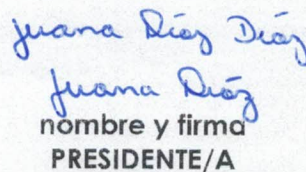 Juana Díaz Díaz
Juana Díaz
nombre y firma
PRESIDENTE/A